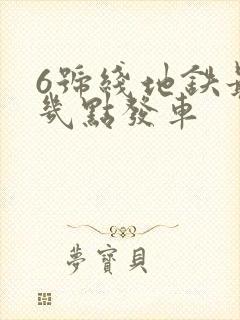 6號綫地鉄
幾點發車
夢寶貝